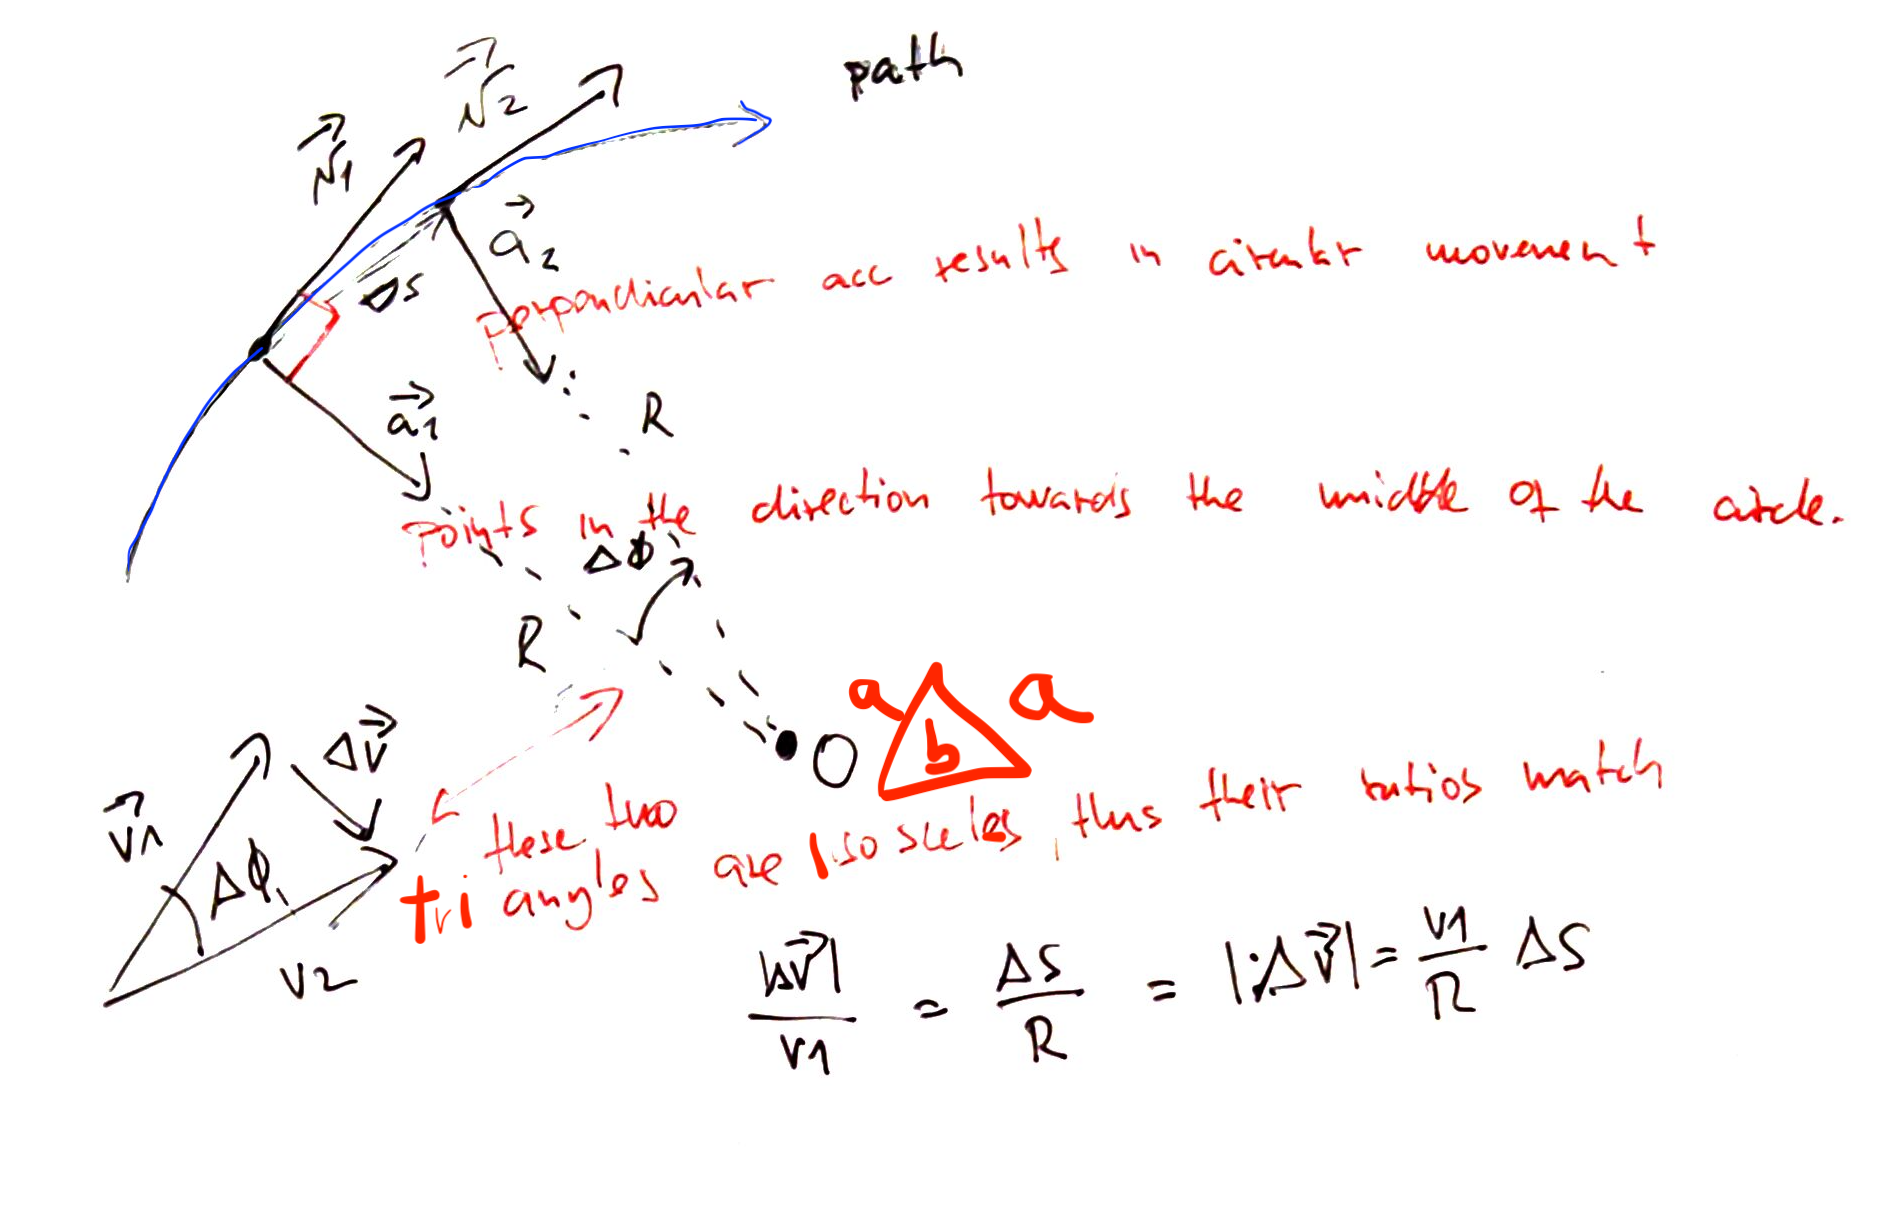 path
v⃗2
v⃗1
a⃗2
Δs
perpendicular acc results in circular movement
a⃗1
R
points in the direction towards the middle of the circle.
Δϕ
R
a a
b
O
Δv⃗
v⃗1
Δϕ
v2
these two
triangles are isosceles, thus their ratios match
|Δv⃗| / v1 = ΔS / R = |Δv⃗| = v1 / R ΔS